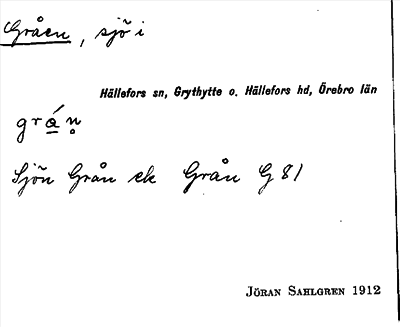 Gråen, sjö i
Hällefors sn, Grythytte o. Hällefors hd, Örebro län
Sjön Grån ek Grån G 81
JÖRAN SAHLGREN 1912